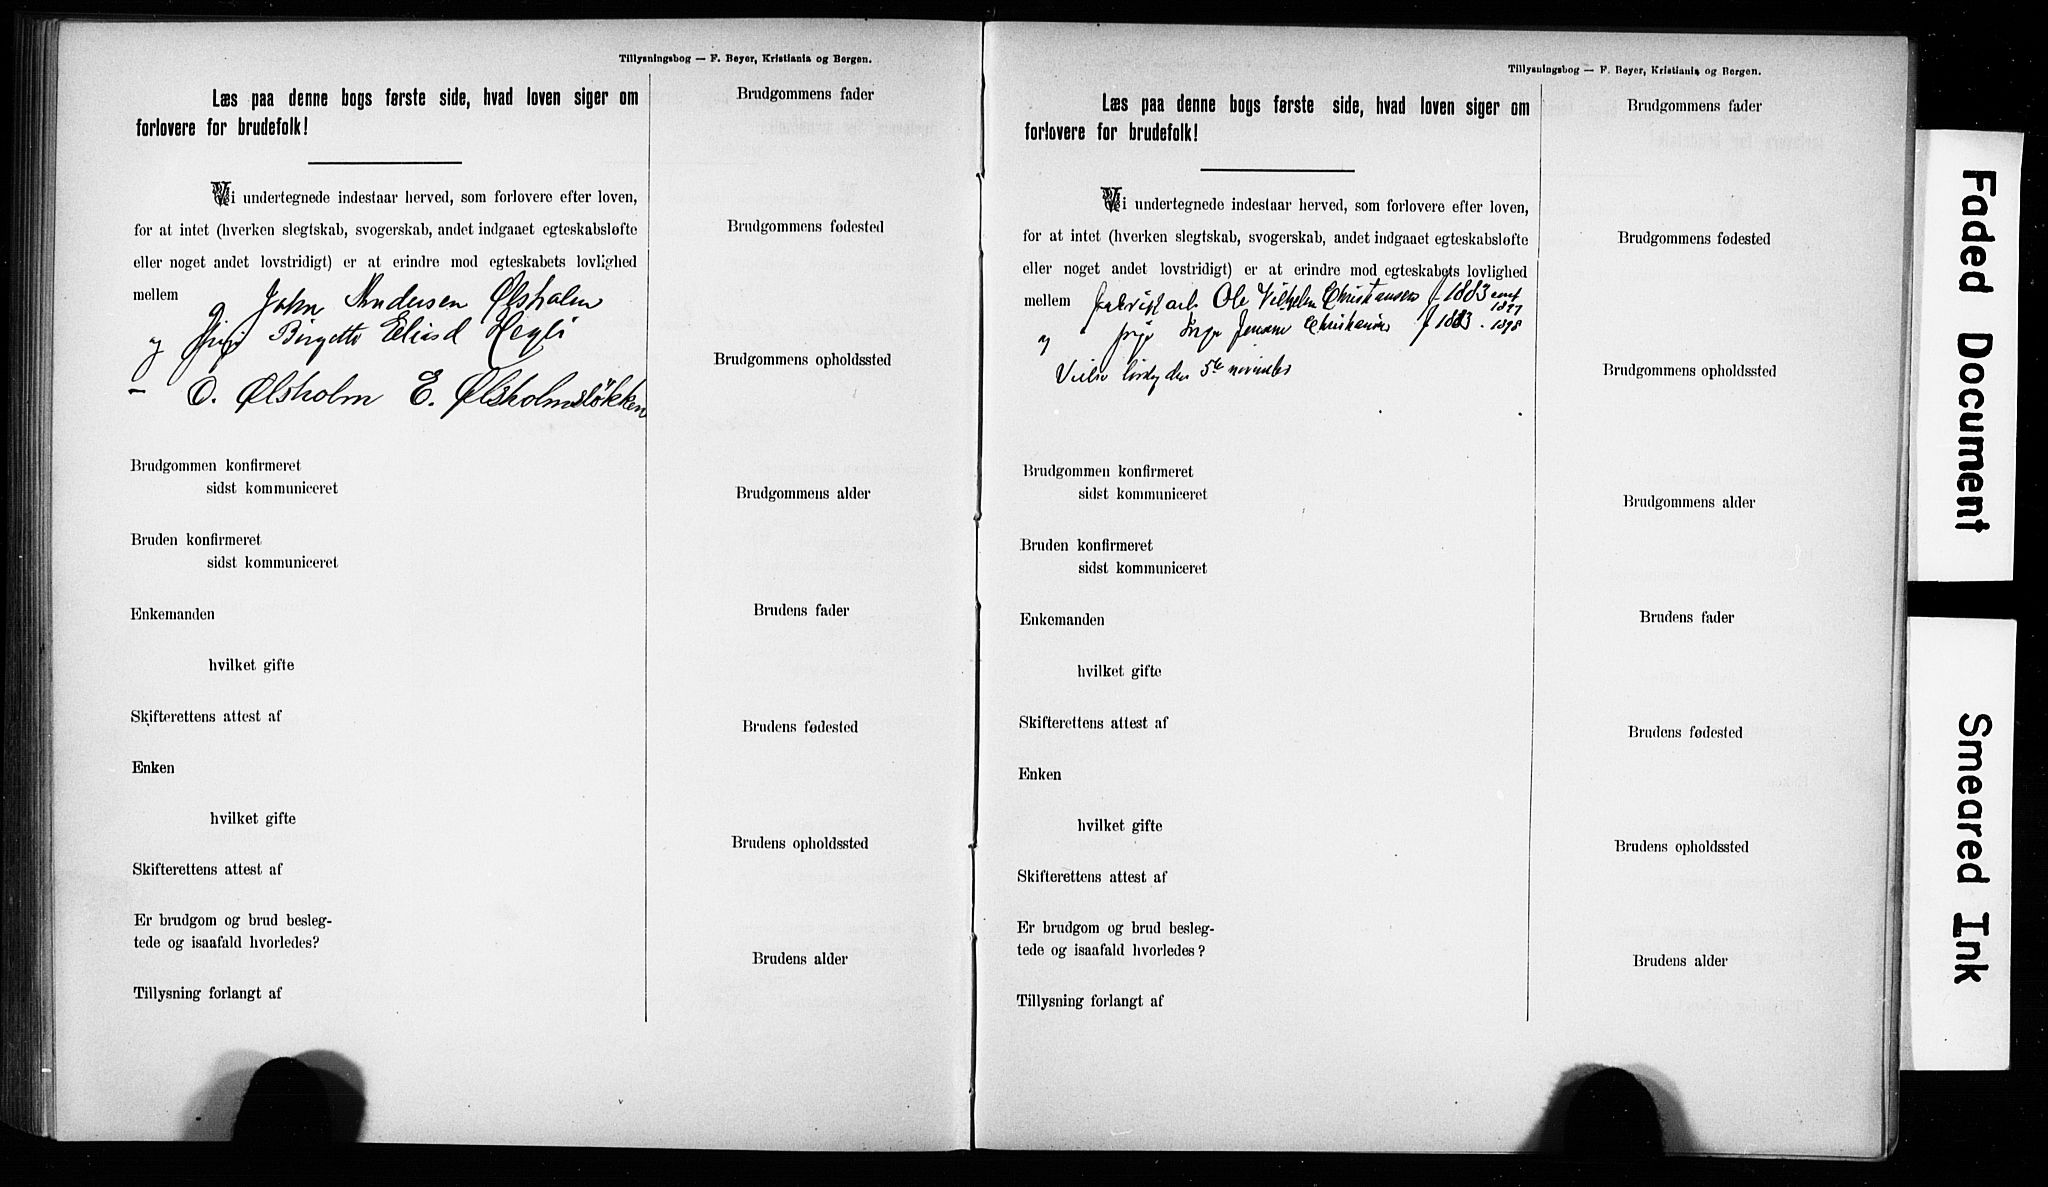 Tillysningsbog — F. Beyer, Kristiania og Bergen.
Læs paa denne bogs første side, hvad loven siger om
forlovere for brudefolk!
Vi undertegnede indestaar herved, som forlovere efter loven,
for at intet (hverken slegtskab, svogerskab, andet indgaaet egteskabsløfte
eller noget andet lovstridigt) er at erindre mod egteskabets lovlighed
mellem John Andersen Ølsholm
og Birgette Eliasd Hegli
O. Ølsholm E. Ølsholmsløkken
Brudgommen konfirmeret
sidst kommuniceret
Bruden konfirmeret
sidst kommuniceret
Enkemanden
hvilket gifte
Skifterettens attest af
Enken
hvilket gifte
Skifterettens attest af
Er brudgom og brud besleg-
tede og isaafald hvorledes?
Tillysning forlangt af
Brudgommens fader
Brudgommens fødested
Brudgommens opholdssted
Brudgommens alder
Brudens fader
Brudens fødested
Brudens opholdssted
Brudens alder
Tillysningsbog — F. Beyer, Kristiania og Bergen.
Læs paa denne bogs første side, hvad loven siger om
forlovere for brudefolk!
Vi undertegnede indestaar herved, som forlovere efter loven,
for at intet (hverken slegtskab, svogerskab, andet indgaaet egteskabsløfte
eller noget andet lovstridigt) er at erindre mod egteskabets lovlighed
mellem fabrikarb Ole Vilhelm Christiansen f 1883 conf 1897
og Inga Christiansen f 1883 - 1898
Vielse lørdag den 5te november
Brudgommen konfirmeret
sidst kommuniceret
Bruden konfirmeret
sidst kommuniceret
Enkemanden
hvilket gifte
Skifterettens attest af
Enken
hvilket gifte
Skifterettens attest af
Er brudgom og brud besleg-
tede og isaafald hvorledes?
Tillysning forlangt af
Brudgommens fader
Brudgommens fødested
Brudgommens opholdssted
Brudgommens alder
Brudens fader
Brudens fødested
Brudens opholdssted
Brudens alder
Faded Document
Smeared Ink